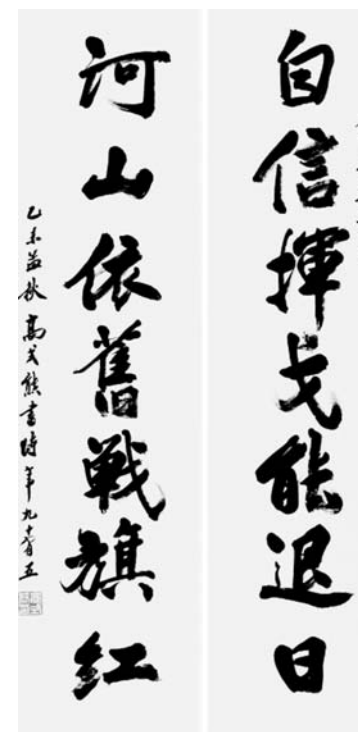 自信揮戈能退日
河山依舊戰旗紅
乙未益秋 高戈能書時年九十有五